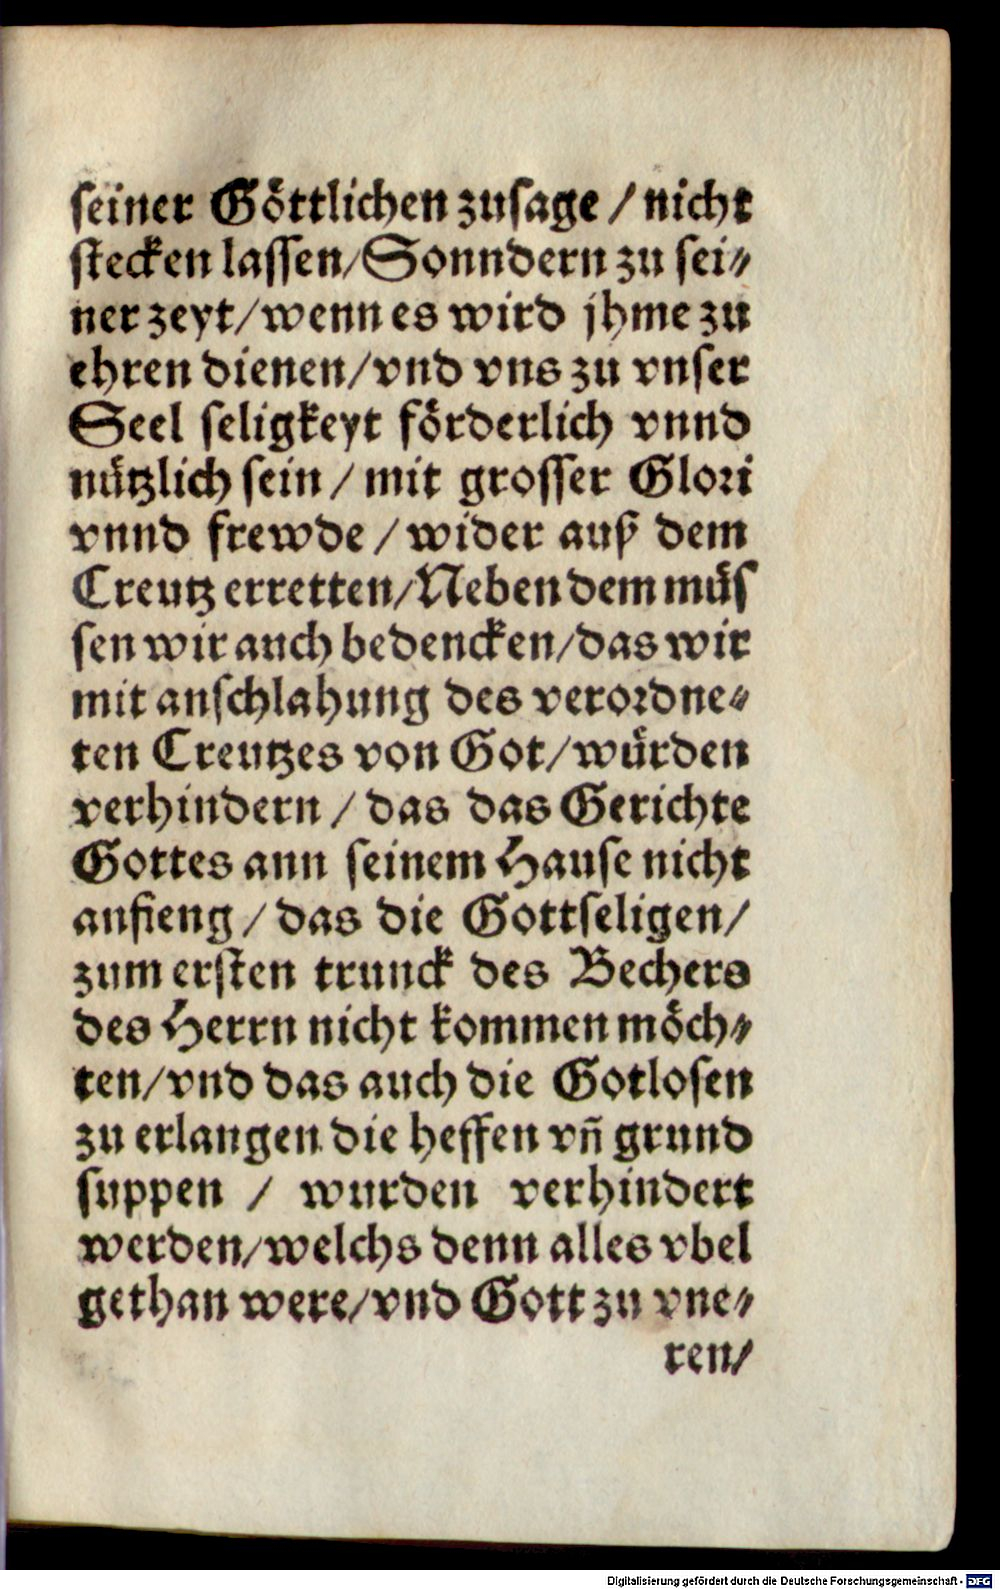 seiner Göttlichen zusage / nicht
stecken lassen/Sonndern zu sei⸗
ner zeyt/wenn es wird jhme zu
ehren dienen/vnd vns zu vnser
Seel seligkeyt förderlich vnnd
nützlich sein / mit grosser Glori
vnnd frewde / wider auß dem
Creutz erretten/Neben dem müs
sen wir auch bedencken/das wir
mit anschlahung des verordne⸗
ten Creutzes von Got/würden
verhindern / das das Gerichte
Gottes ann seinem Hause nicht
anfieng / das die Gottseligen/
zum ersten trunck des Bechers
des Herrn nicht kommen möch⸗
ten/vnd das auch die Gotlosen
zu erlangen die heffen vn̄ grund
suppen / wurden verhindert
werden/welchs denn alles vbel
gethan were/vnd Gott zu vne⸗
ren/
Digitalisierung gefördert durch die Deutsche Forschungsgemeinschaft - DFG